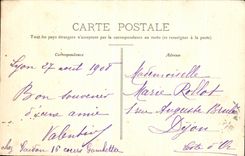 CARTE POSTALE
Tous les pays étrangers n'acceptent pas la correspondance au recto (se renseigner à la poste)
Correspondance
Adresse
Lyon 27 août 1908
Bon souvenir
d'une amie
Valentine
chez 15 cours Gambetta
Mademoiselle
Marie Rollot
1 rue Auguste
Dijon
Côte d'Or